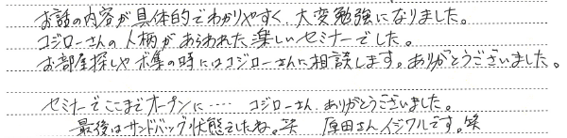 お話の内容が具体的でわかりやすく、大変勉強になりました。
コジローさんの人柄があらわれた楽しいセミナーでした。
お部屋探しや募集の時にはコジローさんに相談します。ありがとうございました。
セミナーでここまでオープンに…… コジローさん、ありがとうございました。
最後はサンドバッグ状態でしたね。笑 原田さんイジワルです。笑